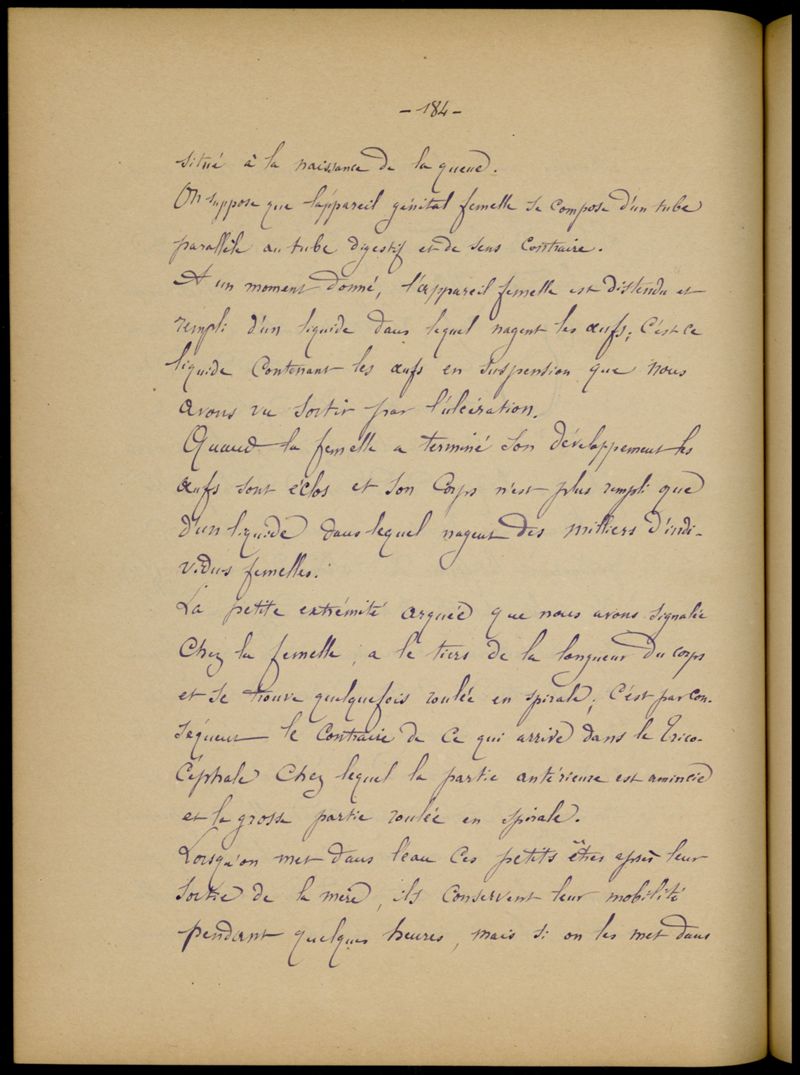 - 184 -
situé à la naissance de la queue.
On suppose que l'appareil génital femelle se compose d'un tube
parallèle au tube digestif et de sens contraire.
A un moment donné, l'appareil femelle est distendu et
rempli d'un liquide dans lequel nagent les œufs; c'est ce
liquide contenant les œufs en suspension que nous
avons vu sortir par l'ulcération.
Quand la femelle a terminé son développement les
œufs sont éclos et son corps n'est plus rempli que
d'un liquide dans lequel nagent des milliers d'indi-
vidus femelles.
La petite extrémité arquée que nous avons signalée
chez la femelle, a le tiers de la longueur du corps
et se trouve quelquefois roulée en spirale; c'est par con-
séquent le contraire de ce qui arrive dans le Trico-
céphale chez lequel la partie antérieure est amincie
et la grosse partie roulée en spirale.
Lorsqu'on met dans l'eau ces petits êtres après leur
sortie de la mère, ils conservent leur mobilité
pendant quelques heures, mais si on les met dans